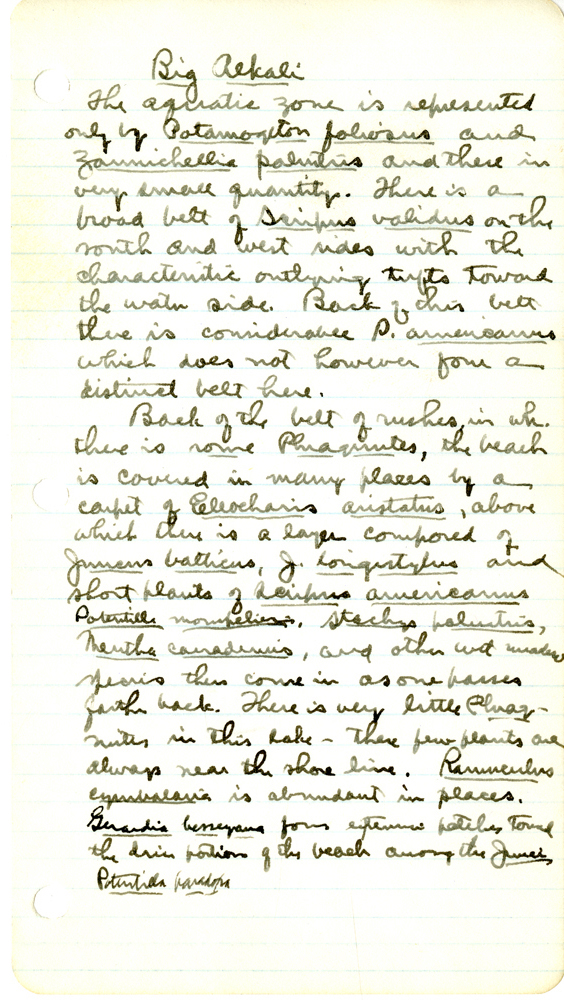 Big Alkali
The aquatic zone is represented
only by Potamogeton foliosus and
Zannichellia palustris and these in
very small quantity. There is a
broad belt of Scirpus validus on the
south and west sides with the
characteristic outlying tufts toward
the water side. Back of this belt
there is considerable S. americanus
which does not however form a
distinct belt here.
Back of the belt of rushes, in wh.
there is some Phragmites, the beach
is covered in many places by a
carpet of Eleocharis aristatus, above
which there is a layer composed of
Juncus balticus, J. longistylus and
short plants of Scirpus americanus
Potentilla monspeliensis, Stachys palustris,
Mentha canadensis, and other wet meadow
species then come in as one passes
farther back. There is very little Phrag-
mites in this lake - these few plants are
always near the shore line. Ranunculus
cymbalaria is abundant in places.
Gerardia besseyana forms extensive patches toward
the drier portion of the beach among the Juncus
Potentilla paradoxa